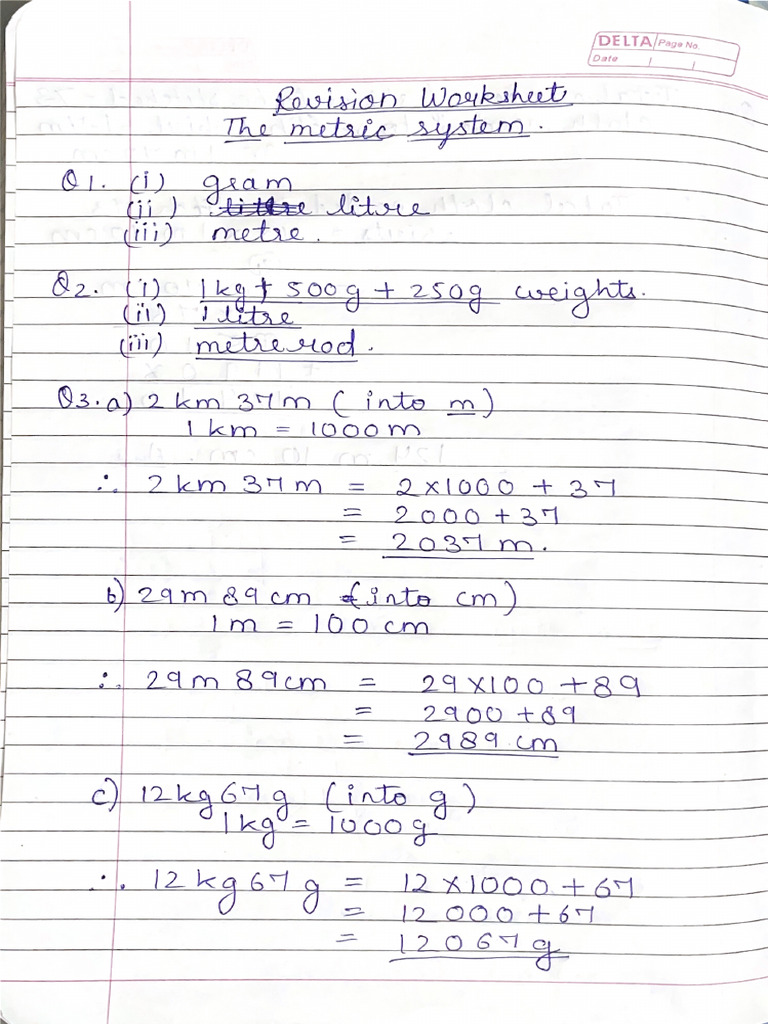 DELTA Page No.
Date
Revision Worksheet
The metric system.
Q1. (i) gram
(ii) litre
(iii) metre.
Q2. (i) 1kg + 500g + 250g weights.
(ii) 1 litre
(iii) metre rod.
Q3. a) 2 km 37m ( into m )
1 km = 1000m
∴ 2 km 37m = 2×1000 + 37
= 2000 + 37
= 2037 m.
b) 29m 89cm (into cm)
1m = 100 cm
∴ 29m 89cm = 29×100 + 89
= 2900 + 89
= 2989 cm
c) 12kg 67g (into g)
1kg = 1000g
∴ 12kg 67g = 12×1000 + 67
= 12000 + 67
= 12067 g